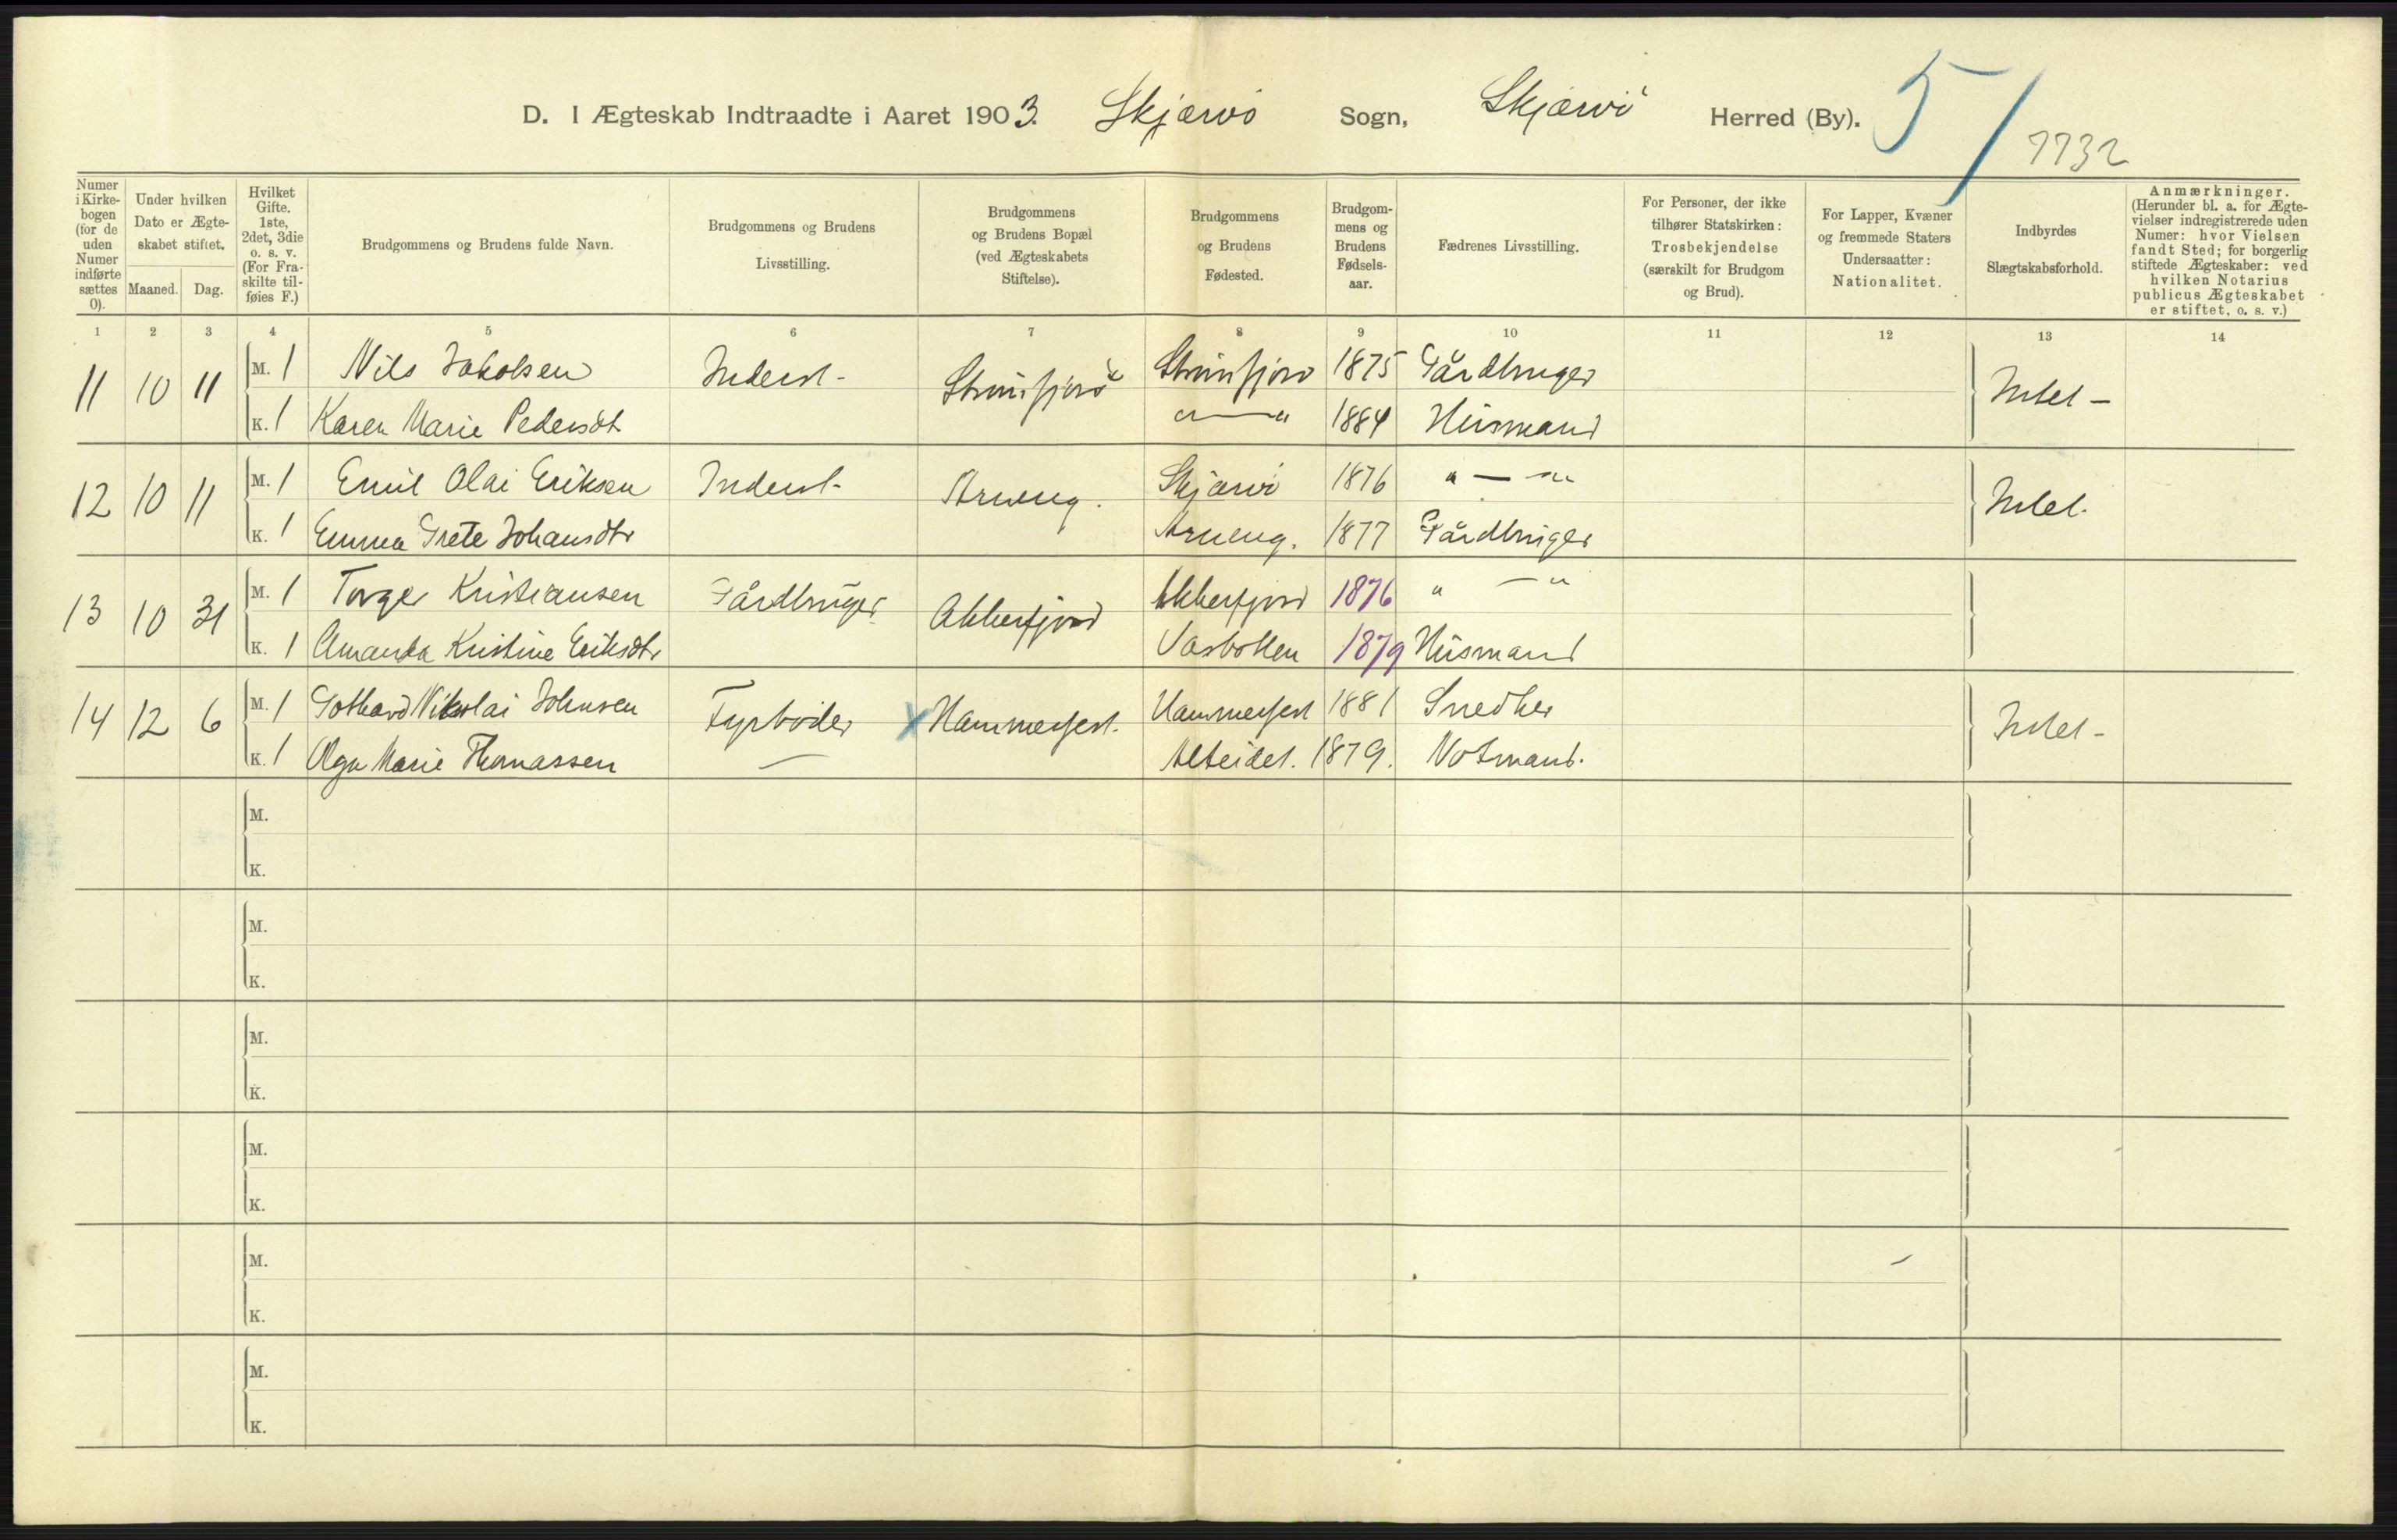 D. I Ægteskab Indtraadte i Aaret 1903. Skjærvö Sogn, Skjærvö Herred (By). 5/ 7732
Numer i Kirkebogen (for de uden Numer indførte sættes 0).
Under hvilken Dato er Ægteskabet stiftet.
Maaned. Dag.
Hvilket Gifte. 1ste, 2det, 3die o. s. v. (For Fraskilte tilføies F.)
Brudgommens og Brudens fulde Navn.
Brudgommens og Brudens Livsstilling.
Brudgommens og Brudens Bopæl (ved Ægteskabets Stiftelse).
Brudgommens og Brudens Fødested.
Brudgommens og Brudens Fødselsaar.
Fædrenes Livsstilling.
For Personer, der ikke tilhører Statskirken: Trosbekjendelse (særskilt for Brudgom og Brud).
For Lapper, Kvæner og fremmede Staters Undersaatter: Nationalitet.
Indbyrdes Slægtskabsforhold.
Anmærkninger. (Herunder bl. a. for Ægtevielser indregistrerede uden Numer: hvor Vielsen fandt Sted; for borgerlig stiftede Ægteskaber: ved hvilken Notarius publicus Ægteskabet er stiftet, o. s. v.)
1 2 3 4 5 6 7 8 9 10 11 12 13 14
11 10 11 M. 1 Nils Jakobsen Inderst- Straumfjord Straumfjord 1875 Gårdbruger Intet -
K. 1 Karen Marie Pedersdt " — " 1884 Husmand
12 10 11 M. 1 Emil Olai Eriksen Inderst- Arneng. Skjærvö 1876 " — " Intet.
K. 1 Emma Grete Johansdtr Arneng. 1877 Gårdbruger
13 10 31 M. 1 Torger Kristiansen Gårdbruger Akkerfjord Akkerfjord 1876 " — "
K. 1 Amanda Kristine Eriksdtr Vasbotten 1879 Husmand
14 12 6 M. 1 Gothard Nikolai Johnsen Fyrböder x Hammerfest. Hammerfest 1881 Snedker Intet -
K. 1 Olga Marie Thomassen — Alteidet. 1879. Notmand.
M.
K.
M.
K.
M.
K.
M.
K.
M.
K.
M.
K.